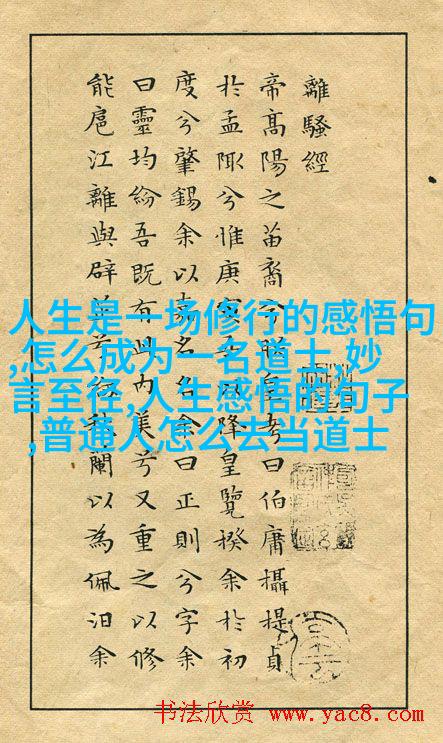 離騷經
帝高陽之苗裔兮朕皇考曰伯庸攝提貞
於孟陬兮惟庚寅吾以降皇覽揆余於初
度兮肇錫余以嘉名名余曰正則兮字余
曰靈均紛吾既有此內美兮又重之以修
能扈江離與辟芷兮紉秋蘭以為佩汨余
人生是一场修行的感悟句
,怎么成为一名道士,妙
言至径,人生感悟的句子
,普通人怎么去当道士
书法欣赏 www.yac8.com